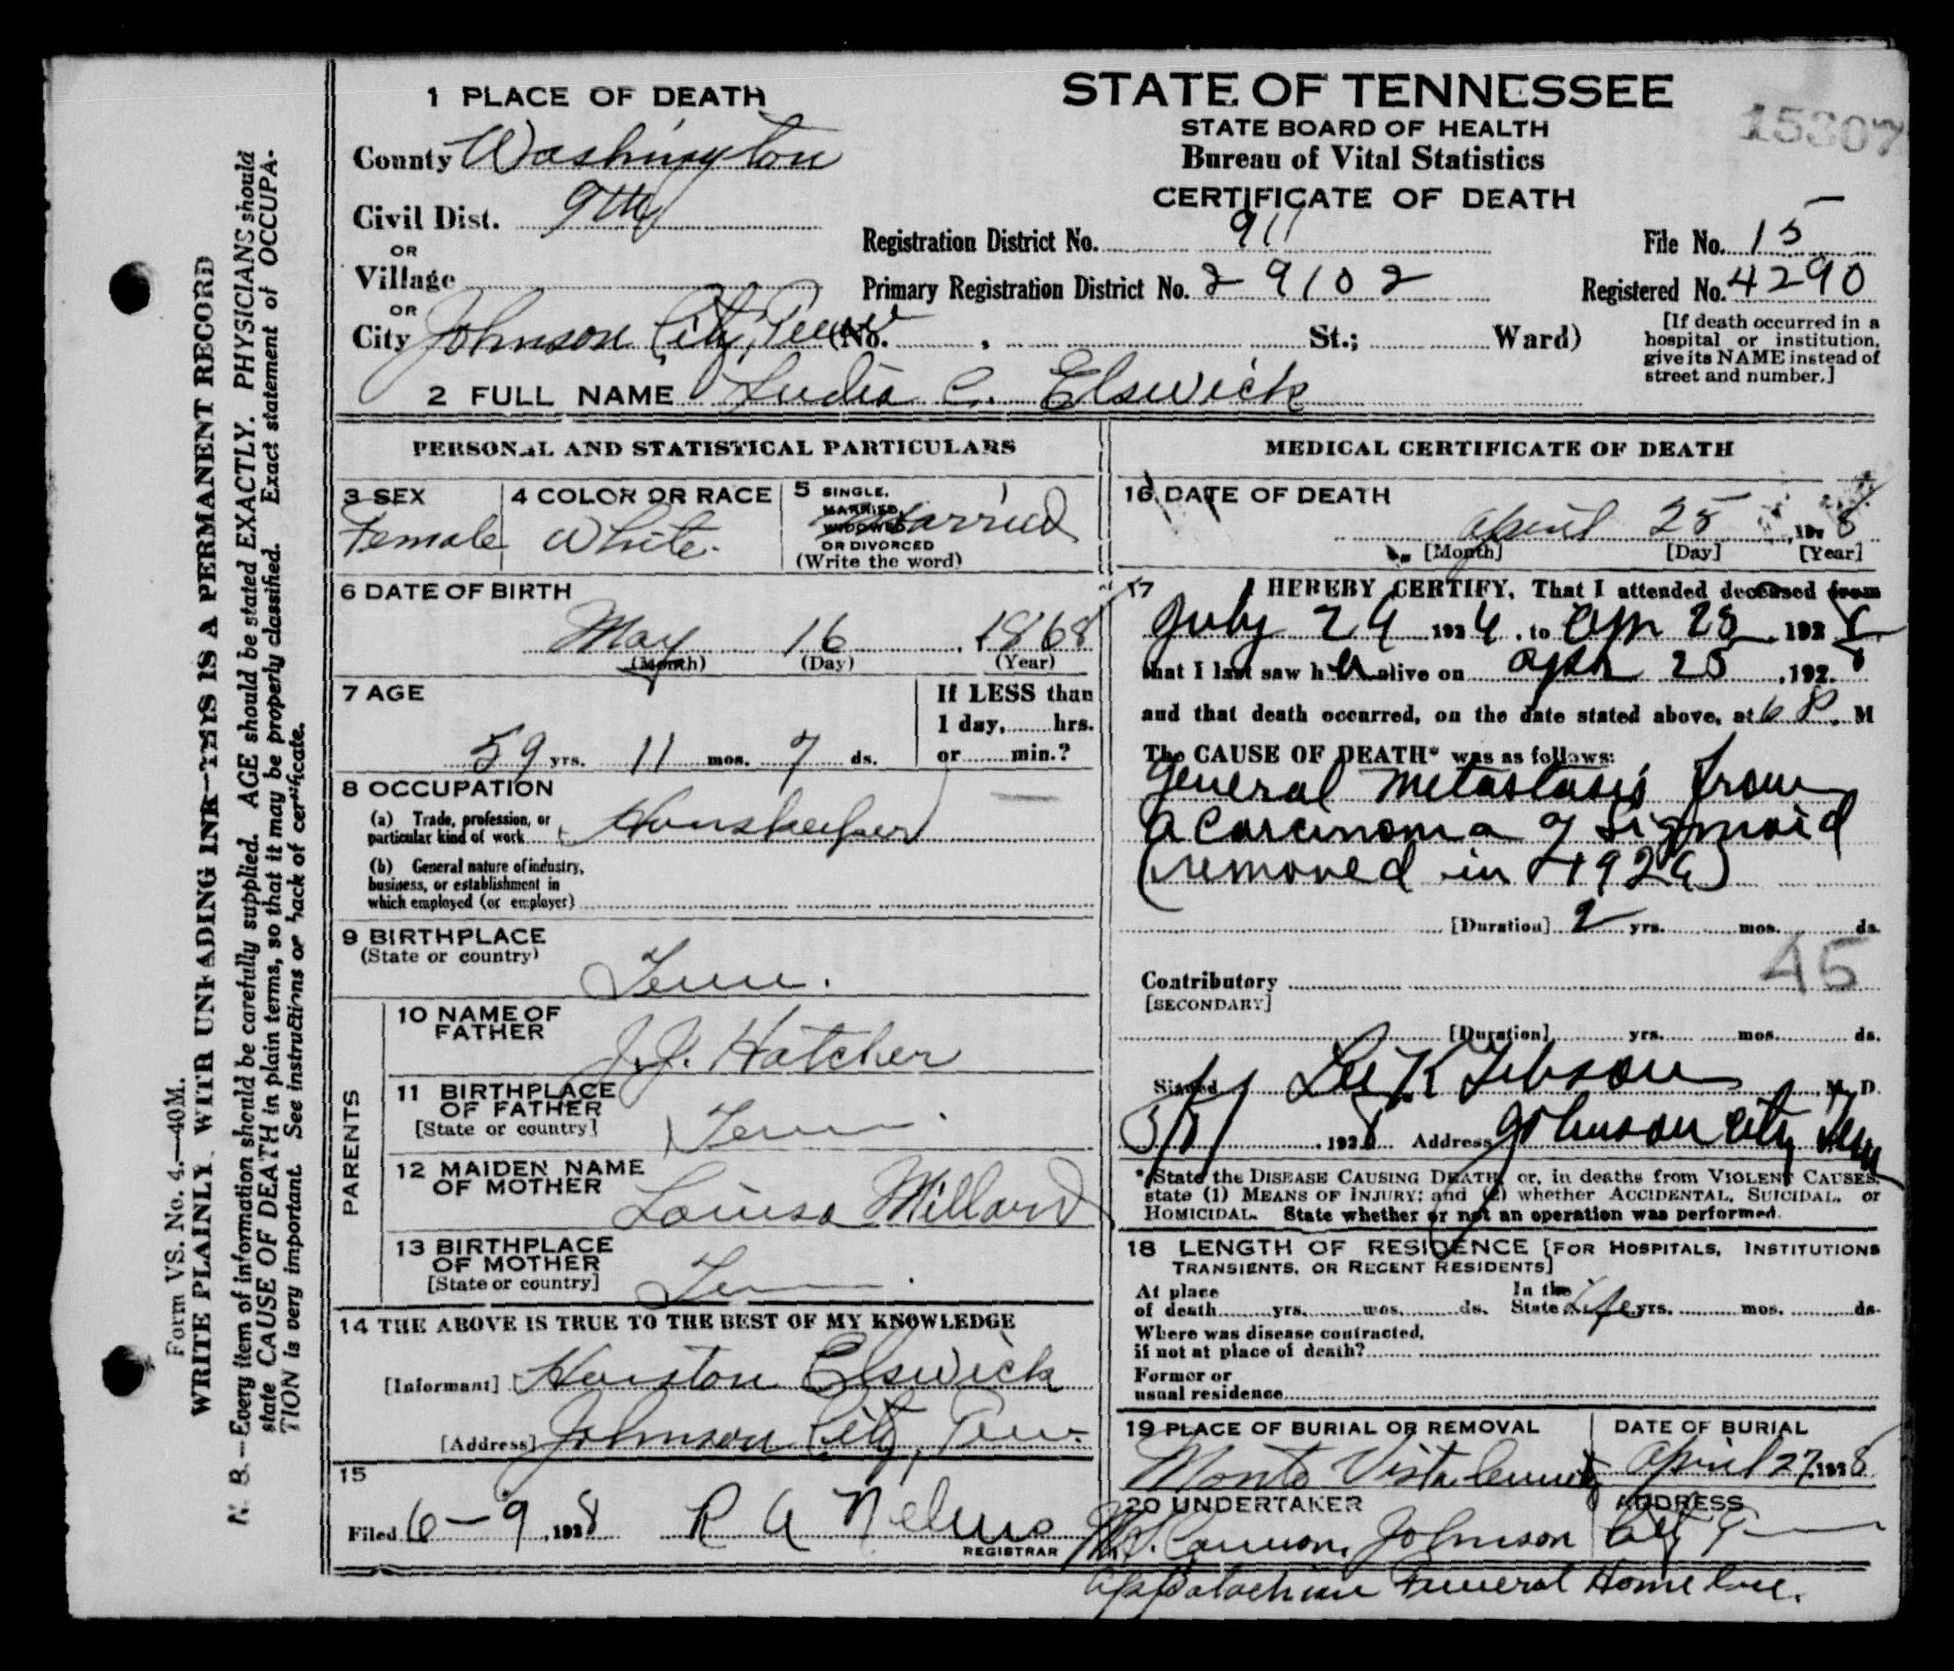 Form VS. No. 4.—40M.
WRITE PLAINLY WITH UNFADING INK—THIS IS A PERMANENT RECORD
N. B.—Every item of information should be carefully supplied. AGE should be stated EXACTLY. PHYSICIANS should
state CAUSE OF DEATH in plain terms, so that it may be properly classified. Exact statement of OCCUPA-
TION is very important. See instructions on back of certificate.
STATE OF TENNESSEE
STATE BOARD OF HEALTH
Bureau of Vital Statistics
CERTIFICATE OF DEATH
15307
1 PLACE OF DEATH
County Washington
Civil Dist. 9th
OR
Village
OR
City Johnson City, Tenn (No. , St.; Ward)
Registration District No. 911
File No. 15
Primary Registration District No. 29102
Registered No. 4290
[If death occurred in a
hospital or institution,
give its NAME instead of
street and number.]
2 FULL NAME C. Elswick
PERSONAL AND STATISTICAL PARTICULARS
3 SEX
Female
4 COLOR OR RACE
White
5 SINGLE,
MARRIED,
WIDOWED
OR DIVORCED
(Write the word)
Married
6 DATE OF BIRTH
May 16, 1868
(Month) (Day) (Year)
7 AGE
59 yrs. 11 mos. 7 ds.
If LESS than
1 day, hrs.
or min.?
8 OCCUPATION
(a) Trade, profession, or
particular kind of work Housekeeper
(b) General nature of industry,
business, or establishment in
which employed (or employer)
9 BIRTHPLACE
(State or country)
Tenn.
PARENTS
10 NAME OF
FATHER
J. J. Hatcher
11 BIRTHPLACE
OF FATHER
[State or country]
Tenn.
12 MAIDEN NAME
OF MOTHER
Louisa Millard
13 BIRTHPLACE
OF MOTHER
[State or country]
Tenn.
14 THE ABOVE IS TRUE TO THE BEST OF MY KNOWLEDGE
[Informant] Houston Elswick
[Address] Johnson City, Tenn.
15
Filed 6-9, 1928 R A Nelms
REGISTRAR
MEDICAL CERTIFICATE OF DEATH
16 DATE OF DEATH
April 25, 1928
[Month] [Day] [Year]
17 I HEREBY CERTIFY, That I attended deceased from
July 24 1924, to Apr 25, 1928
that I last saw her alive on Apr 25, 1928
and that death occurred, on the date stated above, at 6 P. M
The CAUSE OF DEATH* was as follows:
General metastasis from
a carcinoma of sigmoid
(removed in 1924)
[Duration] 2 yrs. mos. ds.
45
Contributory
[SECONDARY]
[Duration] yrs. mos. ds.
Signed Lee K Gibson, M. D.
1928 Address Johnson City Tenn
* State the DISEASE CAUSING DEATH, or, in deaths from VIOLENT CAUSES,
state (1) MEANS OF INJURY; and (2) whether ACCIDENTAL, SUICIDAL, or
HOMICIDAL. State whether or not an operation was performed.
18 LENGTH OF RESIDENCE [FOR HOSPITALS, INSTITUTIONS
TRANSIENTS, OR RECENT RESIDENTS]
At place
of death yrs. mos. ds.
In the
State Life yrs. mos. ds.
Where was disease contracted,
if not at place of death?
Former or
usual residence
19 PLACE OF BURIAL OR REMOVAL
Monte Vista Cemetery
DATE OF BURIAL
April 27, 1928
20 UNDERTAKER
ADDRESS
Cannon, Johnson City Tenn
Appalachian Funeral Home Inc.